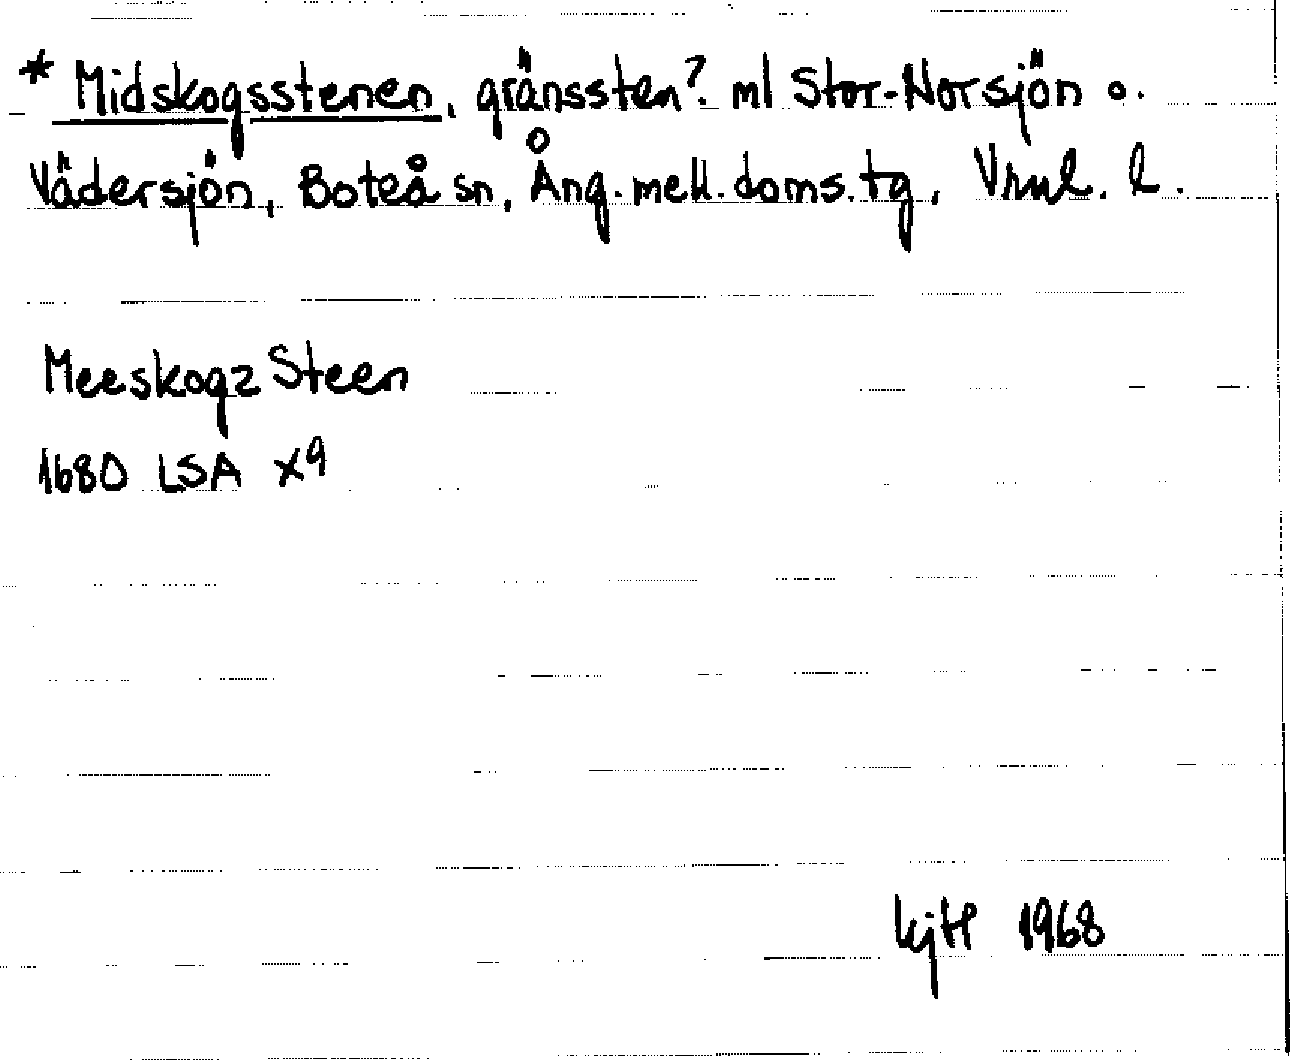 * Midskogsstenen, gränssten? ml Stor-Norsjön o.
Vädersjön, Boteå sn, Ång. mell. doms. tg, Vrnl. l.
Meeskogz Steen
1680 LSA X9
1968